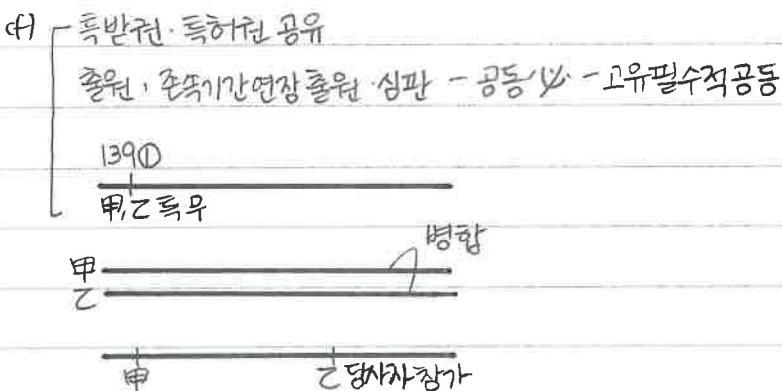 cf) 특받권·특허권 공유
출원, 존속기간연장출원·심판 - 공동 必 - 고유필수적공동
139①
甲,乙 특무
병합
甲
乙
甲 乙 당사자참가